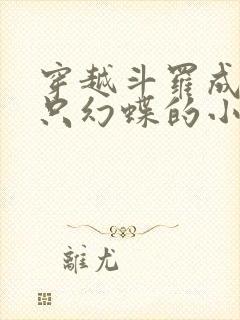 穿越斗罗成
只幻蝶的小
離尤